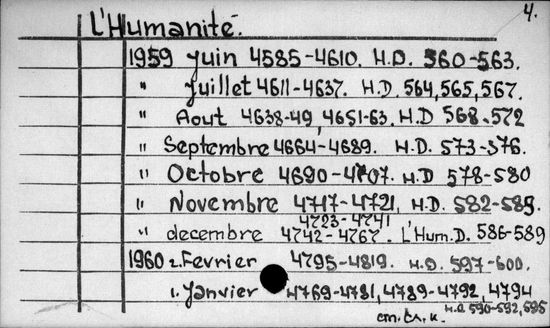 4.
L'Humanité.
1959 Juin 4585-4610. H.D. 560-563.
" Juillet 4611-4637. H.D. 564,565,567.
" Aout 4638-49, 4651-63. H.D 568-572
" Septembre 4664-4689. H.D. 573-576.
" Octobre 4690-4707. H.D 578-580
" Novembre 4717-4721, H.D. 582-585.
4723-4741,
" decembre 4742-4767. L'Hum.D. 586-589
1960 2. Fevrier 4795-4819. H.D. 597-600.
1. Janvier 4769-4781, 4789-4792, 4794
H.D 590-592, 595
см. сл. к.